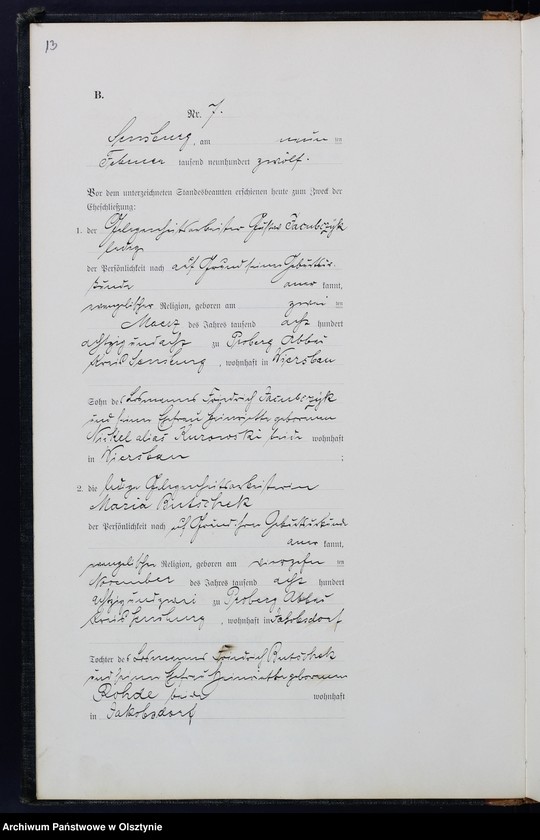 13
B.
Nr. 7.
Sensburg, am neun ten
Februar tausend neunhundert zwölf.
Vor dem unterzeichneten Standesbeamten erschienen heute zum Zweck der
Eheschließung:
1. der Gelegenheitsarbeiter Gustav Jacubczyk
ledig
der Persönlichkeit nach auf Grund seiner Geburtsur-
kunde aner kannt,
evangelischer Religion, geboren am zwei ten
Maerz des Jahres tausend acht hundert
achtzigundacht zu Proberg Abbau
Kreis Sensburg, wohnhaft in Wiersbau
Sohn des Losmanns Friedrich Jacubczyk
und seiner Ehefrau Henriette geborenen
Nickel alias Kurowski beide wohnhaft
in Wiersbau ;
2. die ledige Gelegenheitsarbeiterin
Maria Rutschek
der Persönlichkeit nach auf Grund ihrer Geburtsurkunde
aner kannt,
evangelischer Religion, geboren am vierzehn ten
November des Jahres tausend acht hundert
achtzigundzwei zu Proberg Abbau
Kreis Sensburg, wohnhaft in Jakobsdorf
Tochter des Losmanns Friedrich Rutschek
und seiner Ehefrau Henriette geborenen
Rohde beide wohnhaft
in Jakobsdorf
Archiwum Państwowe w Olsztynie